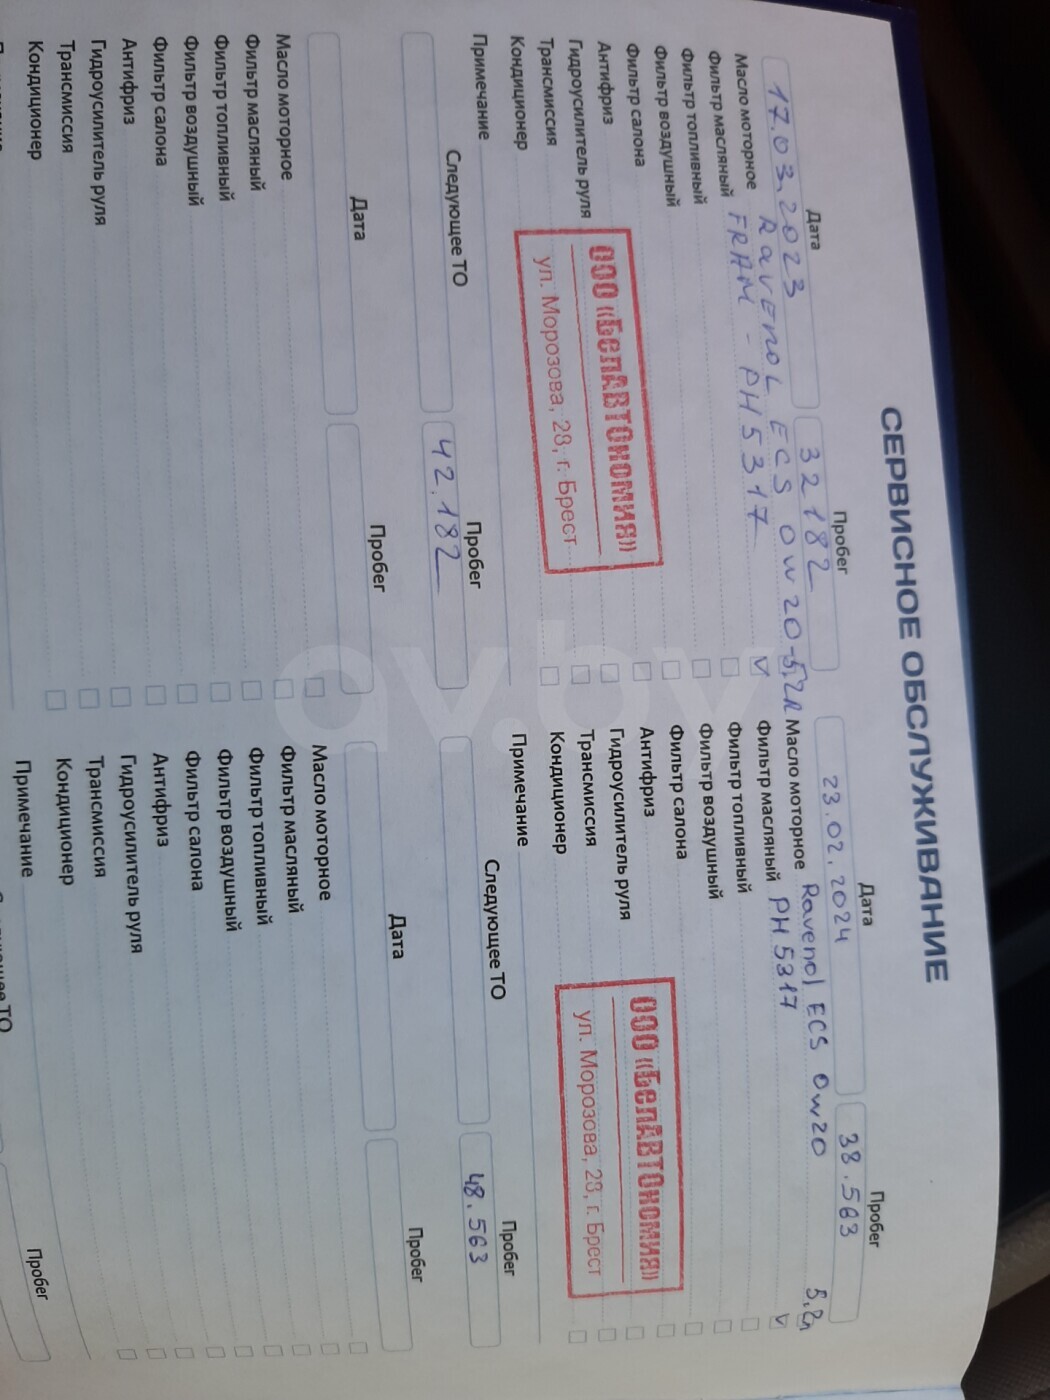 СЕРВИСНОЕ ОБСЛУЖИВАНИЕ
Дата Пробег
17.03.2023 32182
Масло моторное RavenoL ECS 0w20-5,2л
Фильтр масляный FRAM - PH5317
Фильтр топливный
Фильтр воздушный
Фильтр салона
Антифриз
Гидроусилитель руля
Трансмиссия
Кондиционер
Примечание
ООО «БелАВТОКОМИЯ»
ул. Морозова, 28, г. Брест
Следующее ТО Пробег
42.182
Дата Пробег
Масло моторное
Фильтр масляный
Фильтр топливный
Фильтр воздушный
Фильтр салона
Антифриз
Гидроусилитель руля
Трансмиссия
Кондиционер
Дата Пробег
23.02.2024 38.563
Масло моторное Ravenol ECS 0w20 5,2л
Фильтр масляный PH5317
Фильтр топливный
Фильтр воздушный
Фильтр салона
Антифриз
Гидроусилитель руля
Трансмиссия
Кондиционер
Примечание
ООО «БелАВТОКОМИЯ»
ул. Морозова, 28, г. Брест
Следующее ТО Пробег
48.563
Дата Пробег
Масло моторное
Фильтр масляный
Фильтр топливный
Фильтр воздушный
Фильтр салона
Антифриз
Гидроусилитель руля
Трансмиссия
Кондиционер
Примечание
Пробег
av.by